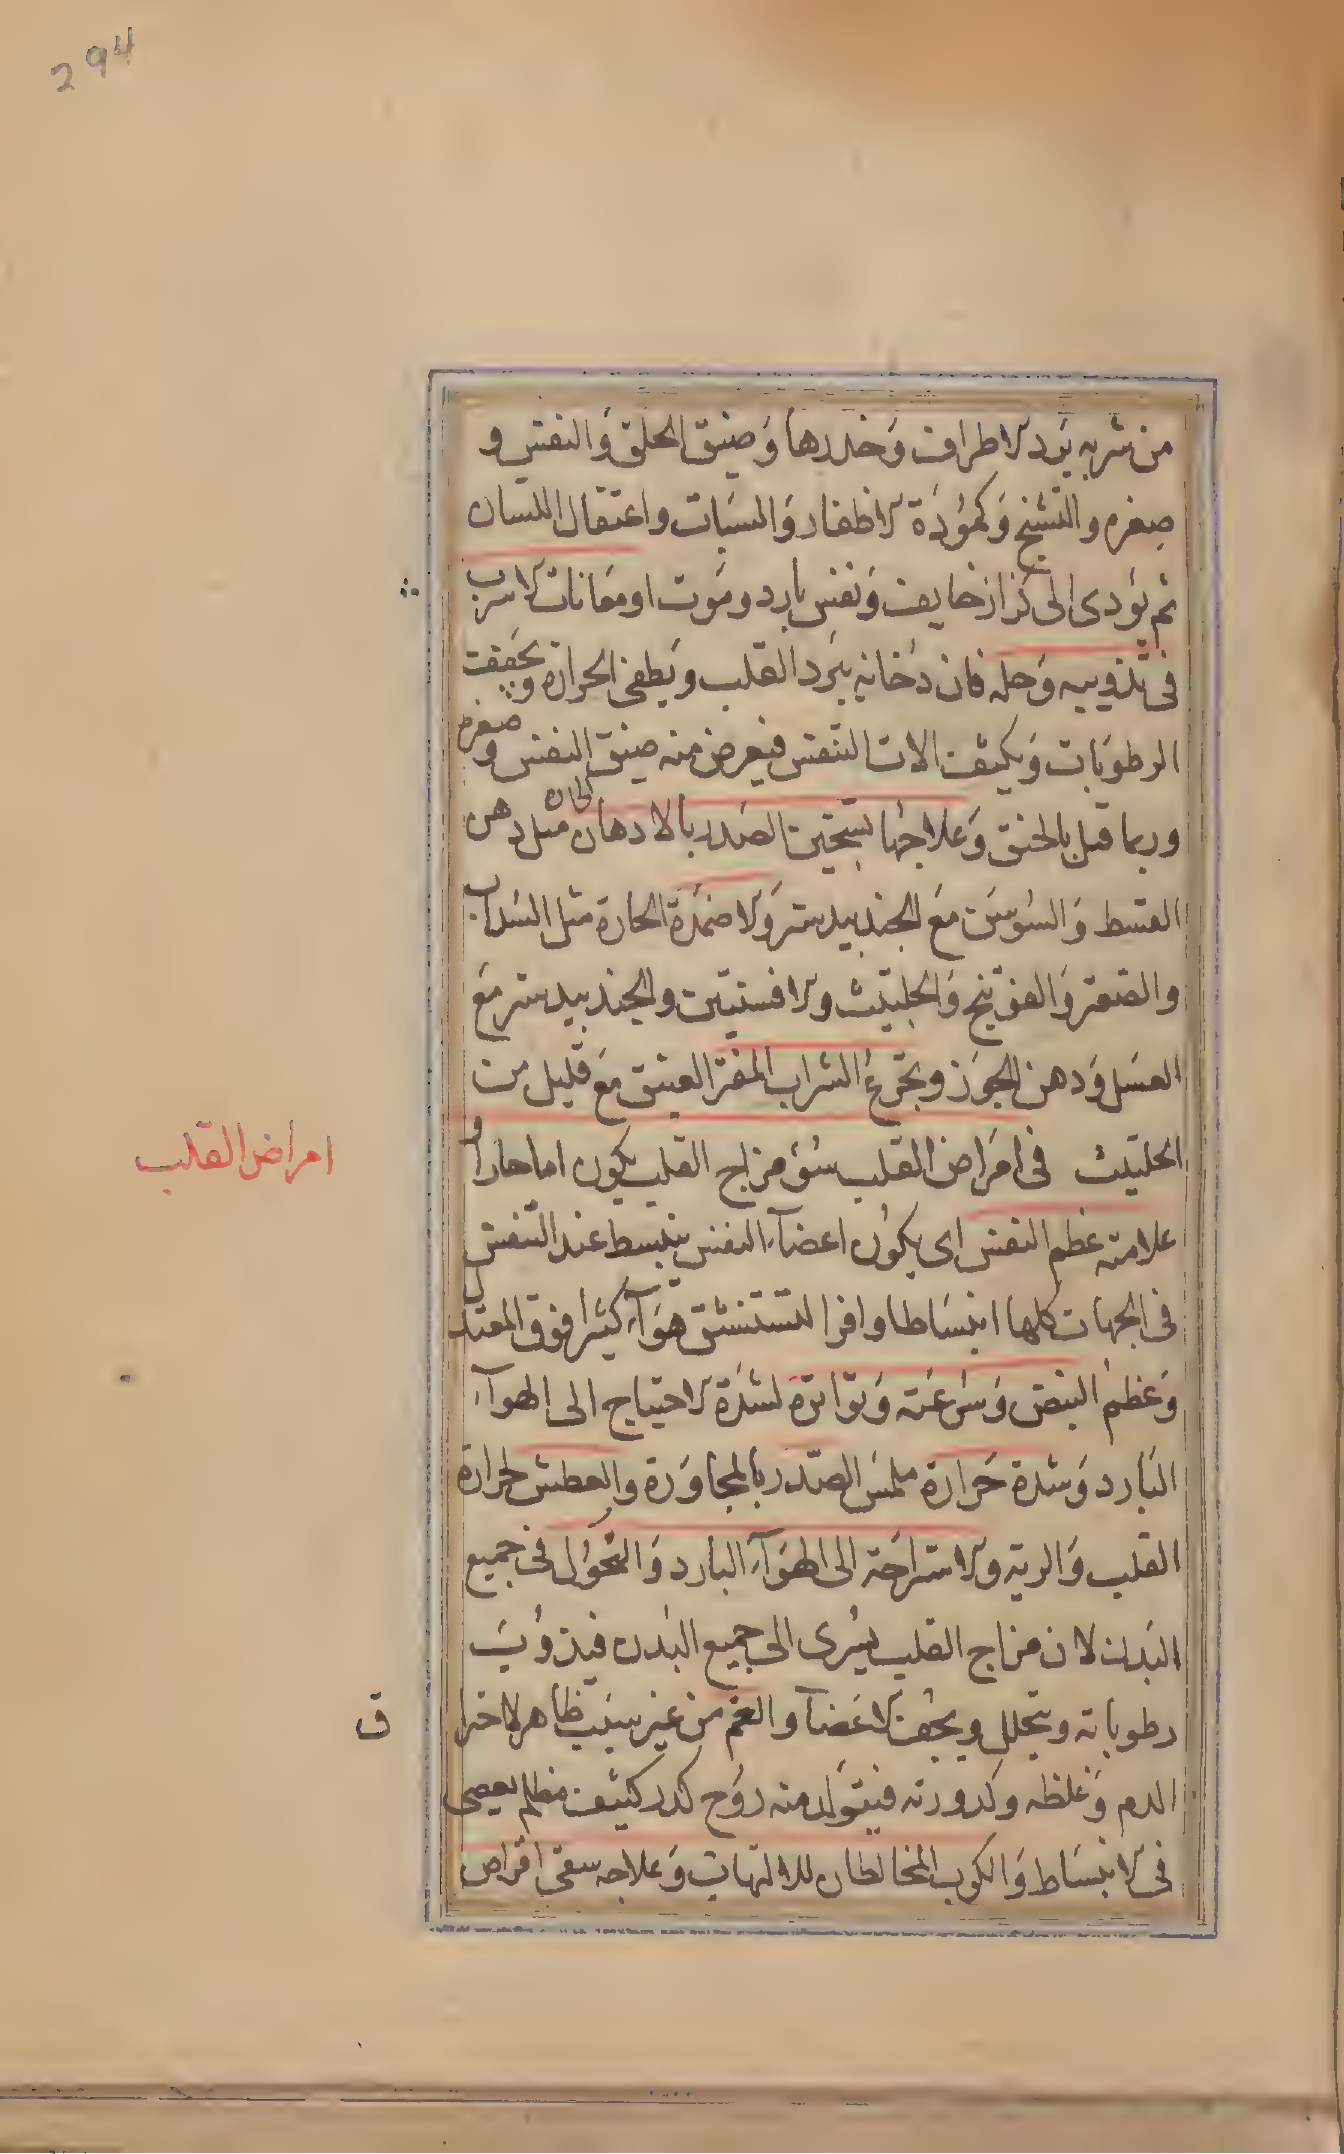 294
من شربه برد الاطراف وخدرها وضيق الحلق والنفس و
صغره والتشنج وكمودة الاظفار والسبات واعتقال اللسان
ثم يودى الى كزاز خانق ونفس بارد وموت او معانات الاسرب
فى تذويبه وحله فان دخانه يبرد القلب ويطفى الحرارة ويجفف
الرطوبات ويكثف الات التنفس فيعرض منه ضيق النفس وصغره
وربما قتل بالخنق وعلاجها تسخين الصدر بالادهان الحارة مثل دهن
القسط والسوسن مع الجندبيدستر والاضمدة الحارة مثل السداب
والصعتر والفوتنج والحلتيت والافسنتين والجندبيدستر مع
العسل ودهن الجوز وتجرع الشراب العتيق مع قليل من
الحلتيت فى امراض القلب سوء مزاج القلب يكون اما حارا و
امراض القلب
علامته عظم النفس اى يكون اعضاء النفس ينبسط عند التنفس
فى الجهات كلها انبساطا وافرا لتستنشق هواء كثيرا فوق المعتدل
وعظم النبض وسرعته وتواتره لشدة الاحتياج الى الهواء
البارد وشدة حرارة ملمس الصدر بالمجاورة والعطش لحرارة
القلب والرية والاستراحة الى الهواء البارد والنحول فى جميع
البدن لان مزاج القلب يسرى الى جميع البدن فيذوب
رطوباته ويتحلل ويجف الاعضاء والغم من غير سبب ظاهر لاحترا
ق
الدم وغلظه وكدورته فيتولد منه روح كدر كثيف مظلم يعصى
فى الانبساط والكرب المخالطان للالتهاب وعلاجه سقى اقراص